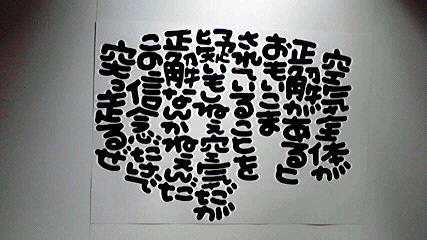 空気全体が
正解があると
おもいこま
されていることを
疑いもしねぇ空気だが
正解なんかねぇんだ
この信念だけで
突っ走るぜ